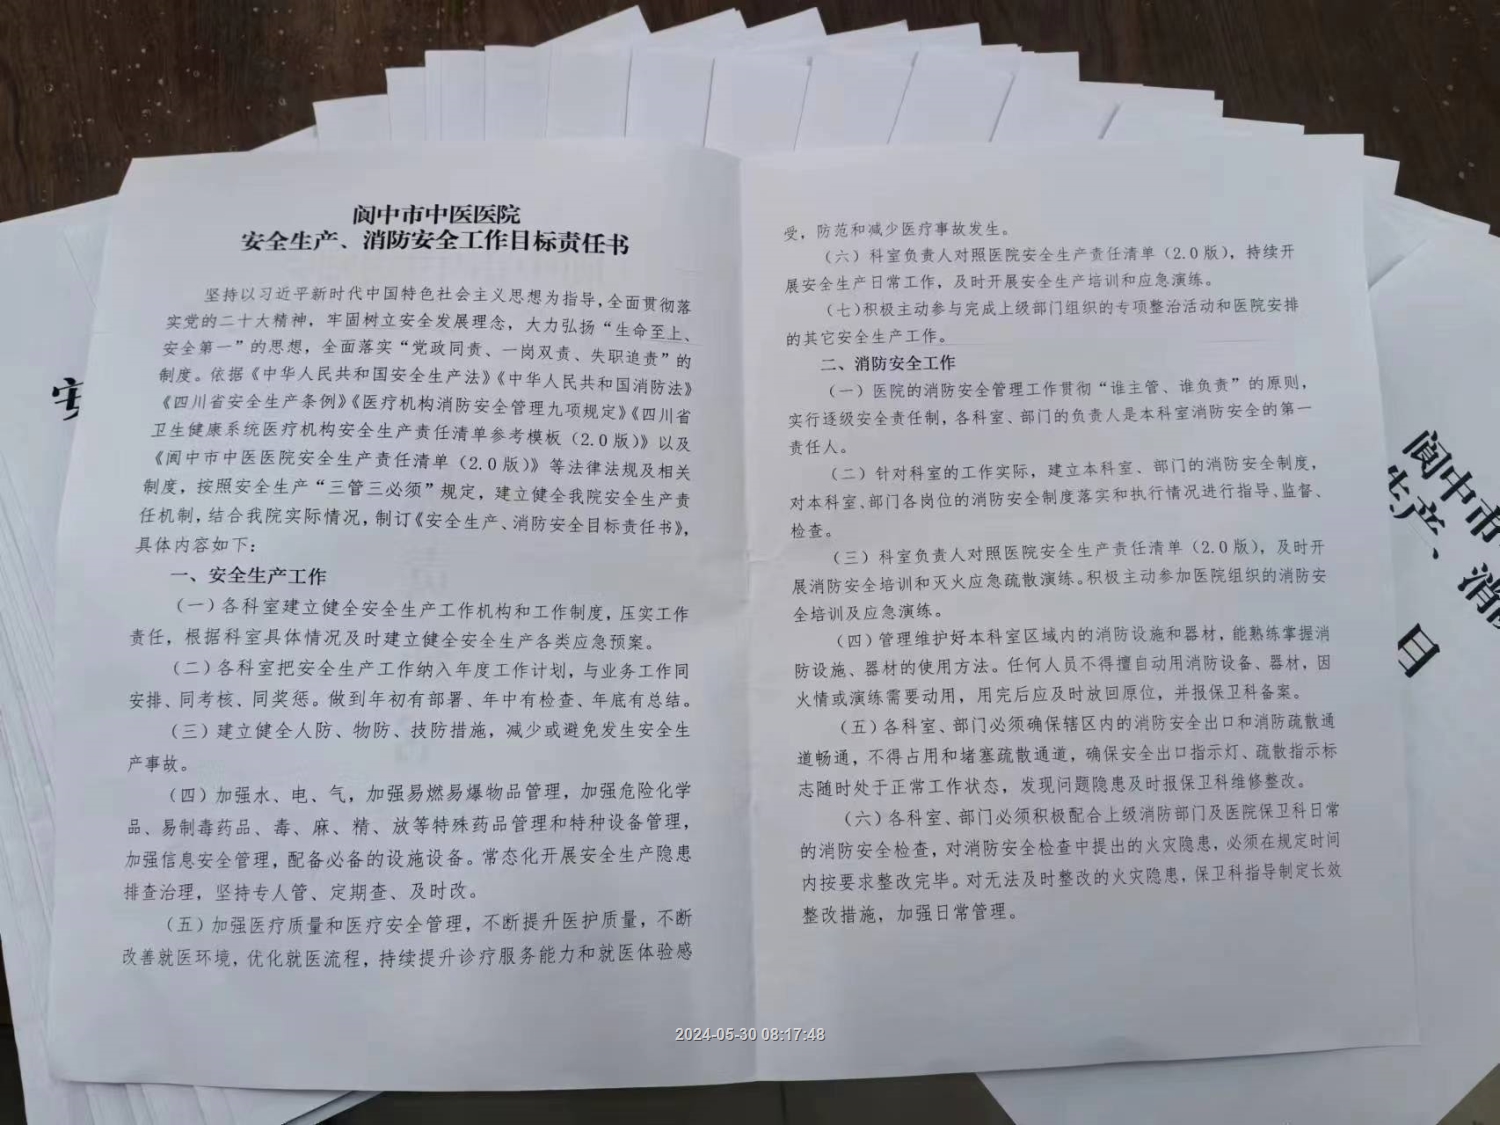 阆中市中医医院
安全生产、消防安全工作目标责任书
坚持以习近平新时代中国特色社会主义思想为指导，全面贯彻落
实党的二十大精神，牢固树立安全发展理念，大力弘扬“生命至上、
安全第一”的思想，全面落实“党政同责、一岗双责、失职追责”的
制度。依据《中华人民共和国安全生产法》《中华人民共和国消防法》
《四川省安全生产条例》《医疗机构消防安全管理九项规定》《四川省
卫生健康系统医疗机构安全生产责任清单参考模板（2.0版）》以及
《阆中市中医医院安全生产责任清单（2.0版）》等法律法规及相关
制度，按照安全生产“三管三必须”规定，建立健全我院安全生产责
任机制，结合我院实际情况，制订《安全生产、消防安全目标责任书》，
具体内容如下：
一、安全生产工作
（一）各科室建立健全安全生产工作机构和工作制度，压实工作
责任，根据科室具体情况及时建立健全安全生产各类应急预案。
（二）各科室把安全生产工作纳入年度工作计划，与业务工作同
安排、同考核、同奖惩。做到年初有部署、年中有检查、年底有总结。
（三）建立健全人防、物防、技防措施，减少或避免发生安全生
产事故。
（四）加强水、电、气，加强易燃易爆物品管理，加强危险化学
品、易制毒药品、毒、麻、精、放等特殊药品管理和特种设备管理，
加强信息安全管理，配备必备的设施设备。常态化开展安全生产隐患
排查治理，坚持专人管、定期查、及时改。
（五）加强医疗质量和医疗安全管理，不断提升医护质量，不断
改善就医环境，优化就医流程，持续提升诊疗服务能力和就医体验感
受，防范和减少医疗事故发生。
（六）科室负责人对照医院安全生产责任清单（2.0版），持续开
展安全生产日常工作，及时开展安全生产培训和应急演练。
（七）积极主动参与完成上级部门组织的专项整治活动和医院安排
的其它安全生产工作。
二、消防安全工作
（一）医院的消防安全管理工作贯彻“谁主管、谁负责”的原则，
实行逐级安全责任制，各科室、部门的负责人是本科室消防安全的第一
责任人。
（二）针对科室的工作实际，建立本科室、部门的消防安全制度，
对本科室、部门各岗位的消防安全制度落实和执行情况进行指导、监督、
检查。
（三）科室负责人对照医院安全生产责任清单（2.0版），及时开
展消防安全培训和灭火应急疏散演练。积极主动参加医院组织的消防安
全培训及应急演练。
（四）管理维护好本科室区域内的消防设施和器材，能熟练掌握消
防设施、器材的使用方法。任何人员不得擅自动用消防设备、器材，因
火情或演练需要动用，用完后应及时放回原位，并报保卫科备案。
（五）各科室、部门必须确保辖区内的消防安全出口和消防疏散通
道畅通，不得占用和堵塞疏散通道，确保安全出口指示灯、疏散指示标
志随时处于正常工作状态，发现问题隐患及时报保卫科维修整改。
（六）各科室、部门必须积极配合上级消防部门及医院保卫科日常
的消防安全检查，对消防安全检查中提出的火灾隐患，必须在规定时间
内按要求整改完毕。对无法及时整改的火灾隐患，保卫科指导制定长效
整改措施，加强日常管理。
安
阆中市
生产、消
目
2024-05-30 08:17:48